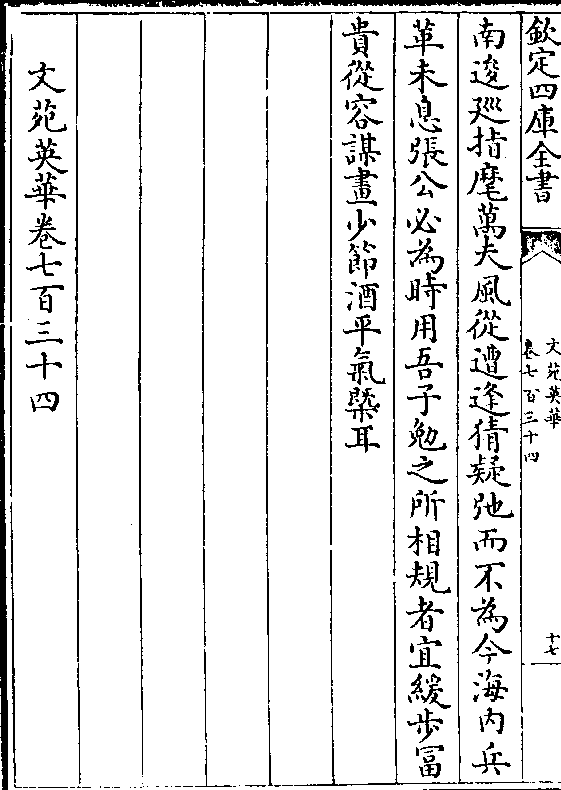 欽定四庫全書
文苑英華
卷七百三十四
十七
南逡廵指麾萬夫風從遭逢猜疑弛而不為今海内兵
革未息張公必為時用吾子勉之所相規者宜緩步富
貴從容謀畫少節酒平氣槩耳
文苑英華卷七百三十四